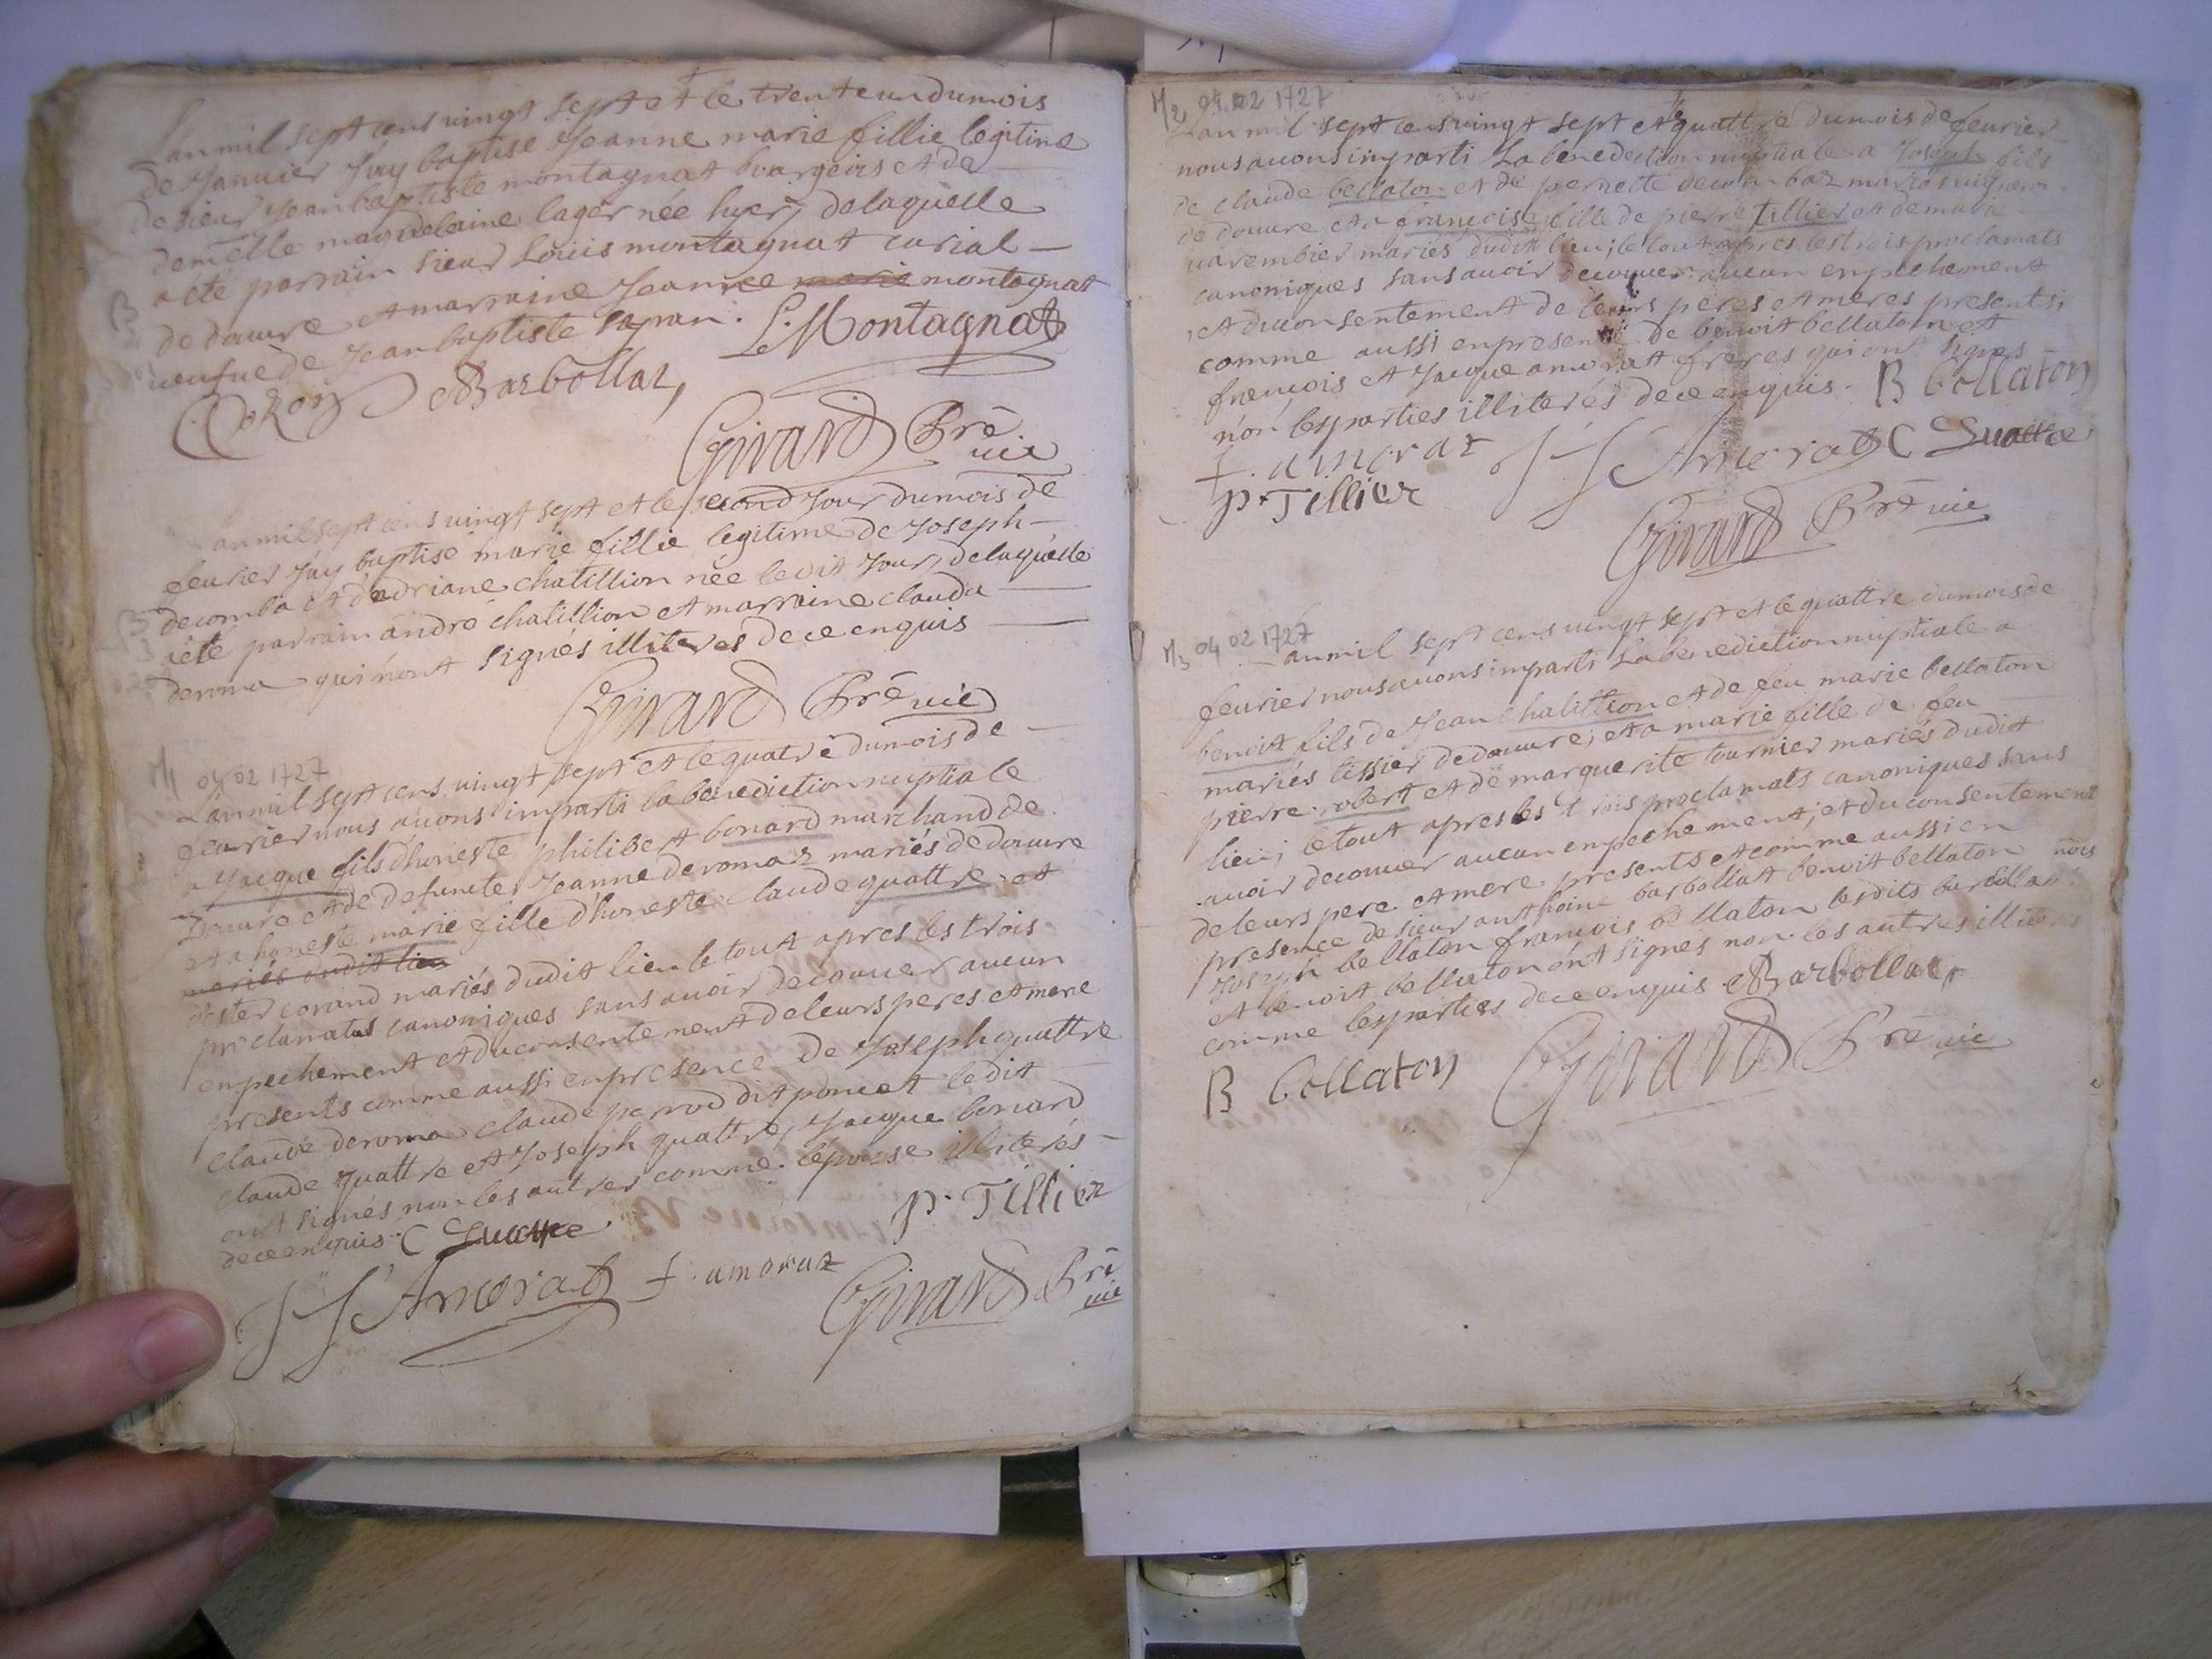 Lan mil sept cens vingt sept et le trente un du mois
de Janvier Jay baptisé Jeanne marie fillie legitime
de sieur Jean baptiste montagnat bourgeois et de
demelle magdelaine lager née hyer, delaquelle
a été parrain sieur Loüis montagnat curial
de douvre et marraine Jeanne marie montagnat
veufue de Jean baptiste sapan. L. Montagnat
Barbollat,
Girard Prê
vic
Lan mil sept cens vingt sept et le second Jour du mois de
feurier Jay baptisé marie fillie legitime de Joseph
decomba et d'adriane chatillion née ledit Jour, delaquelle
a été parrain andré chatillion et marraine clauda
deroma qui n'ont signés illiteres de ce enquis
Girard Prê vic
M1 04 02 1727
Lan mil sept cens vingt sept et le quatre du mois de
feurier nous auons imparti la benediction nuptiale
a Jacque fils d'honeste philibert bonard marchand de
Douure et de defuncte Jeanne deromaz mariés de douure
et a honeste marie fille d'honeste claude quattre et
mariés dudit lieu
d'ester corand mariés dudit lieu le tout apres les trois
proclamats canoniques sans auoir decouuer aucun
empechement et du consentement de leurs peres et mere
presents comme aussi en presence de Joseph quattre
claude deroma claude perrod dit poncet ledit
claude quattre et Joseph quattre, Jacque bonard
ont signés non les autres comme l'épouse illiterés
de ce enquis. C Quattre
p. Tillier
J J Amorat f. amoraz
Girard Prê
vic
M2 04.02 1727
Lan mil sept cens vingt sept et le quattre du mois de feurier
nous auons imparti La benediction nuptiale a Joseph fils
de claude bellaton et de pernette decombaz mariés vigneron
de douure et a françoise fille de pierre Tillier et de marie
varembier mariés dudit lieu; le tout apres les trois proclamats
canoniques sans auoir decouuer aucun empechement
et du consentement de leurs peres et meres presents,
comme aussi en presence de benoit bellaton et
françois et Jacque amorat freres qui ont signes
non les parties illiterés de ce enquis. B bellaton
f. amoraz J J Amorat C Quattre
p. Tillier
Girard Prê vic
M3 04 02 1727
Lan mil sept cens vingt sept et le quattre du mois de
feurier nous auons imparti La benediction nuptiale a
benoit fils de Jean chatillion et de feu marie bellaton
mariés tissier de douure; et a marie fille de feu
pierre robert et de marguerite tournier mariés dudit
lieu; le tout apres les trois proclamats canoniques sans
auoir decouuer aucun empechement; et du consentement
de leurs pere et mere presents et comme aussi en
presence de sieur anthoine barbollat benoit bellaton
Joseph bellaton françois bellaton lesdits barbollat
et benoit bellaton ont signés non les autres illiteres
comme les parties de ce enquis Barbollat,
B bellaton Girard Prê vic